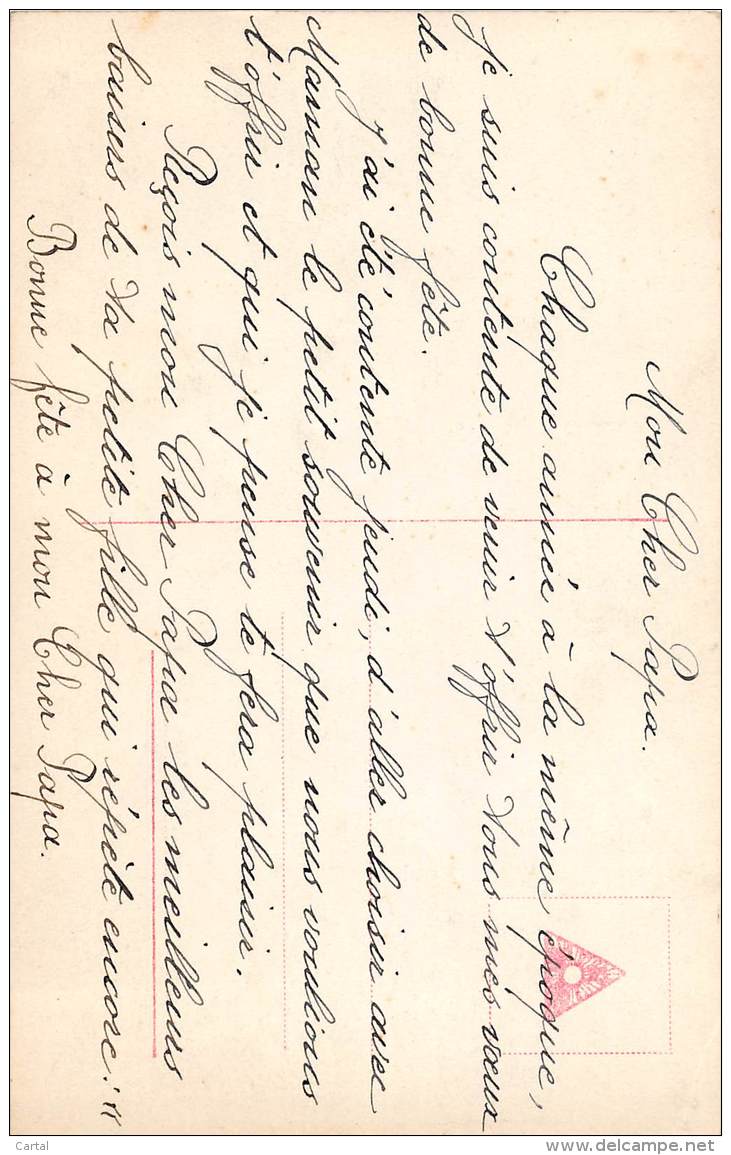 Mon Cher Papa.
Chaque année à la même époque,
je suis contente de venir t'offrir tous mes vœux
de bonne fête.
J'ai été contente jeudi, d'aller choisir avec
Maman le petit souvenir que nous voulions
t'offrir et qui je pense te fera plaisir.
Reçois mon Cher Papa les meilleurs
baisers de ta petite fille qui répète encore: "
Bonne fête à mon Cher Papa.
Cartal
delcampe.net